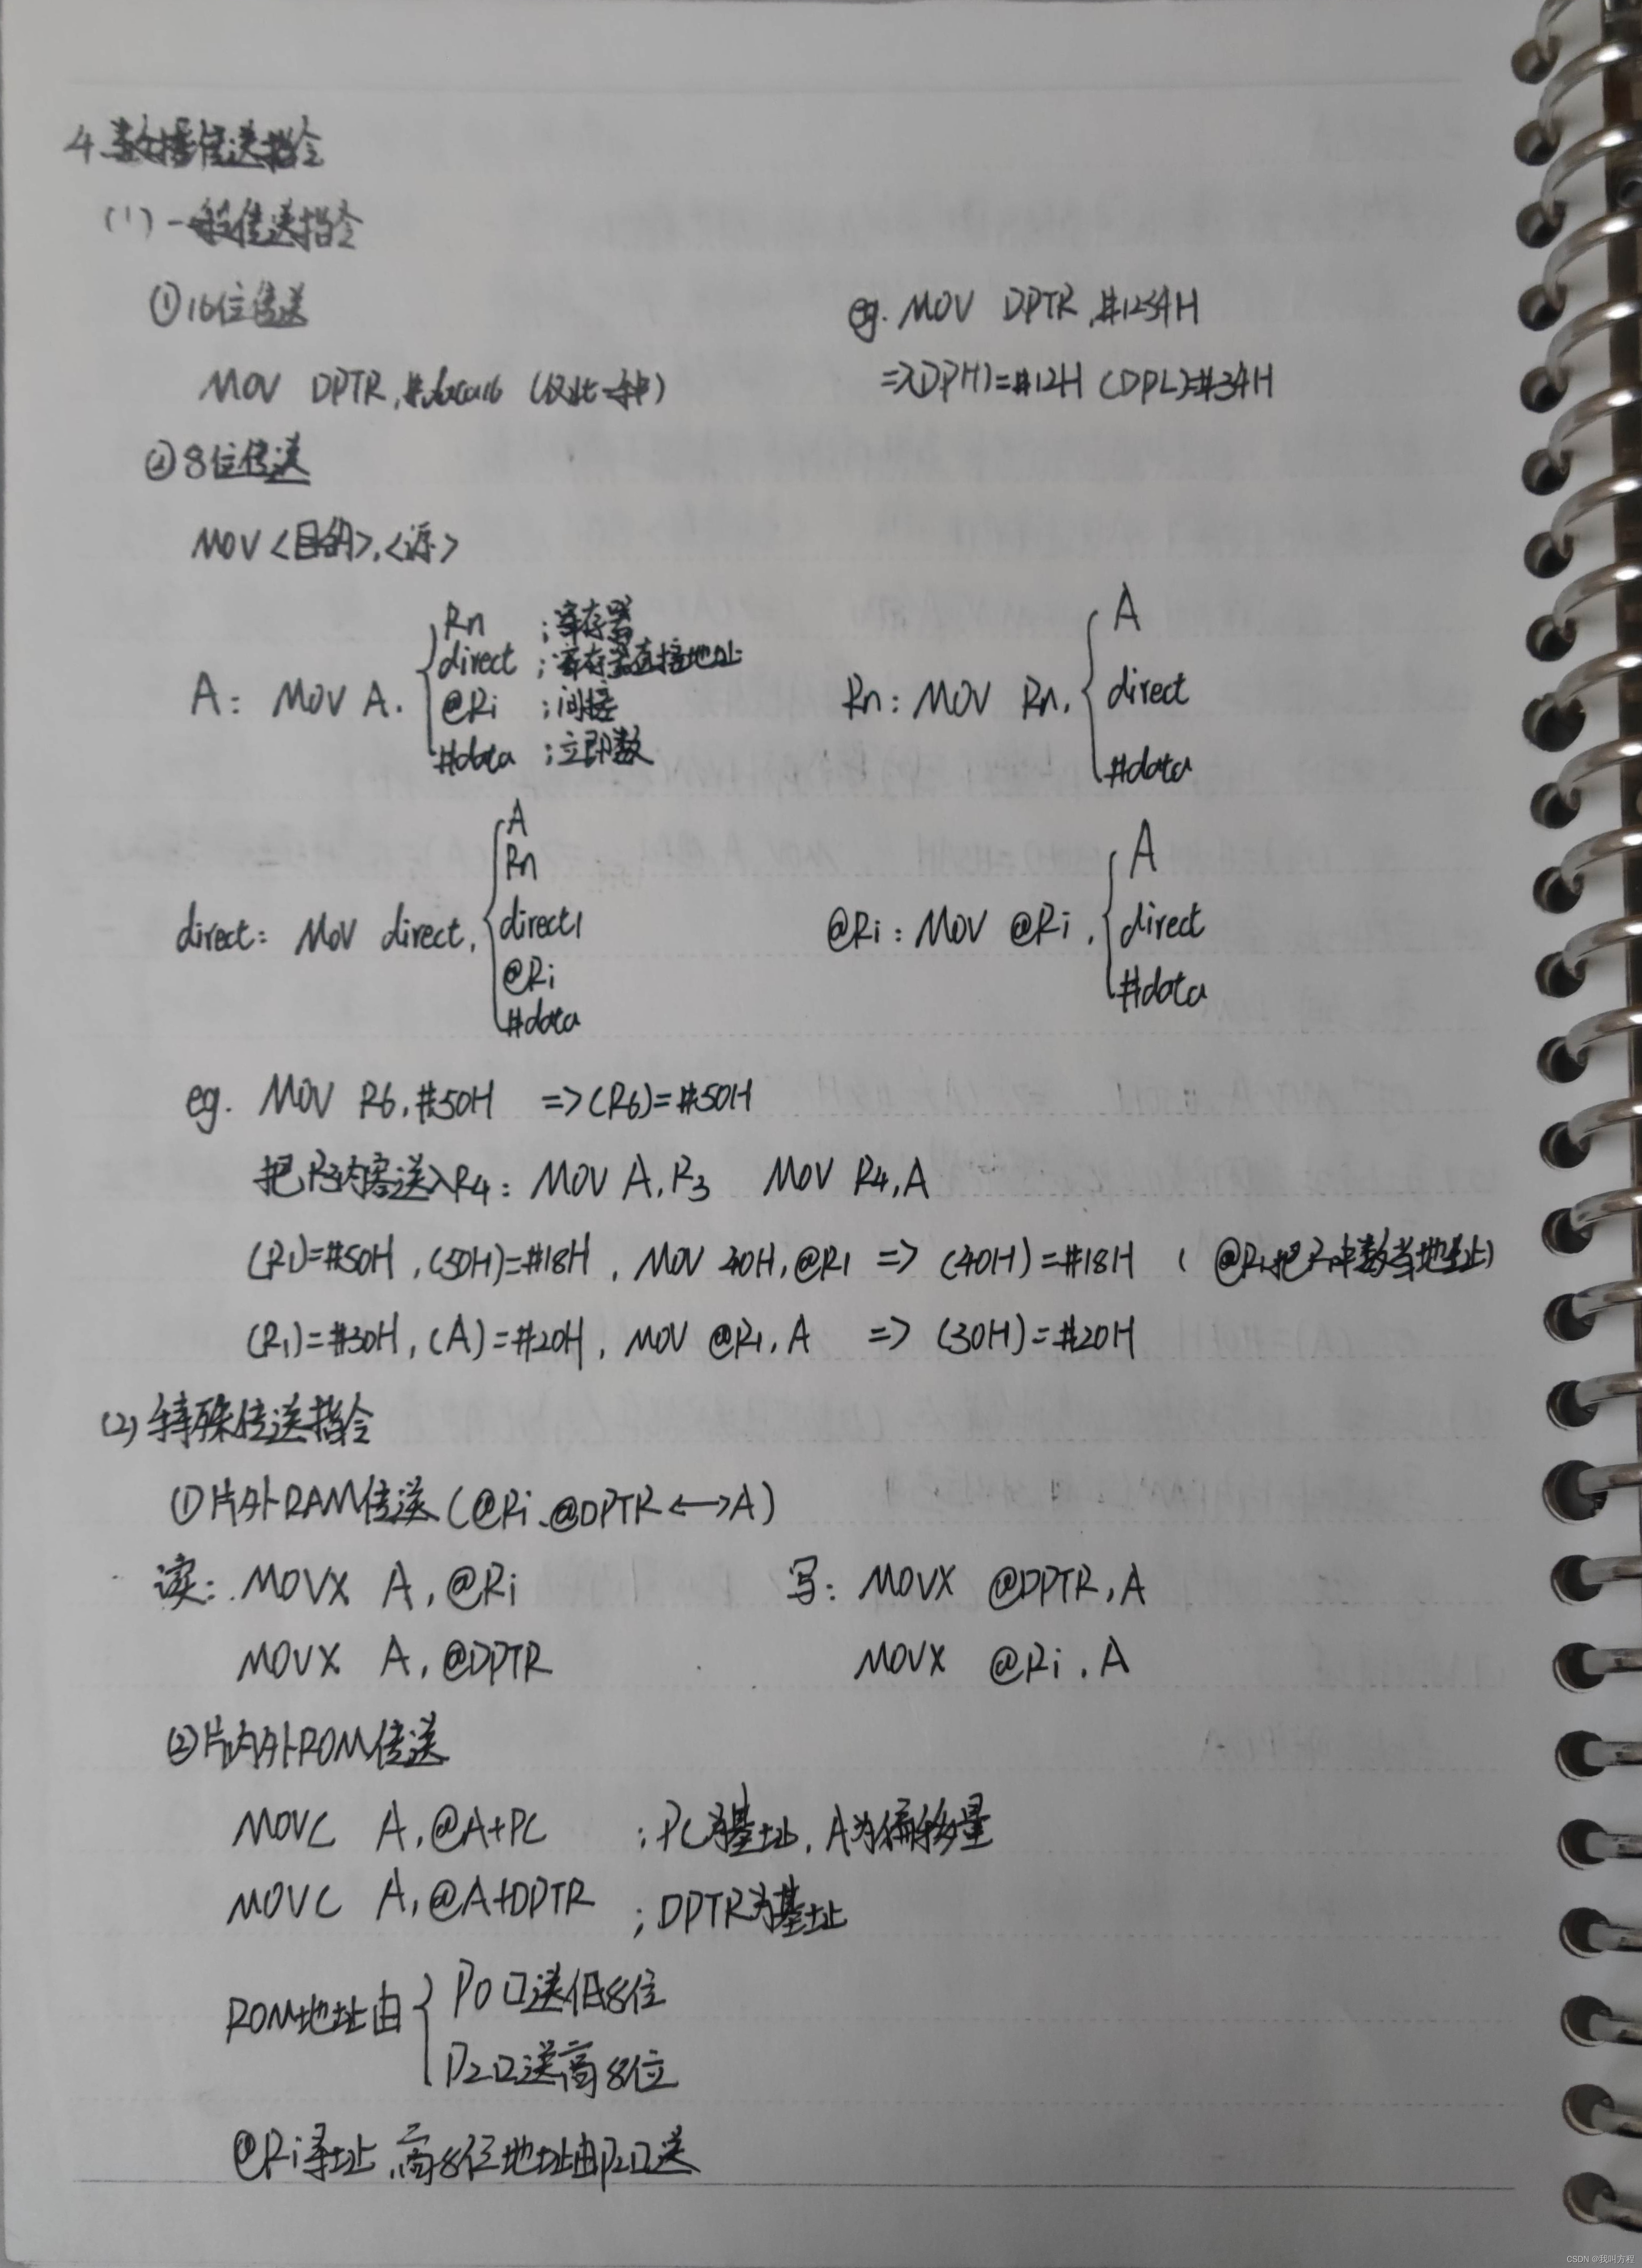 4 数据传送指令
(1) 一般传送指令
①16位传送
eg. MOV DPTR,#1234H
MOV DPTR,#data16 (仅此一种)
=>(DPH)=#12H (DPL)=#34H
②8位传送
MOV <目的>,<源>
A: MOV A,
Rn ;寄存器
direct ;寄存器直接地址
@Ri ;间接
#data ;立即数
Rn: MOV Rn,
A
direct
#data
direct: MOV direct,
A
Rn
direct1
@Ri
#data
@Ri: MOV @Ri,
A
direct
#data
eg. MOV R6,#50H =>(R6)=#50H
把R3内容送入R4: MOV A,R3 MOV R4,A
(R1)=#50H,(50H)=#18H, MOV 40H,@R1 => (40H)=#18H (@R1把R1中数当地址)
(R1)=#30H,(A)=#20H, MOV @R1,A => (30H)=#20H
(2) 特殊传送指令
①片外RAM传送(@Ri、@DPTR<—>A)
读: MOVX A,@Ri 写: MOVX @DPTR,A
MOVX A,@DPTR MOVX @Ri,A
②片内外ROM传送
MOVC A,@A+PC ;PC为基址,A为偏移量
MOVC A,@A+DPTR ;DPTR为基址
ROM地址由
P0口送低8位
P2口送高8位
@Ri寻址,高8位地址由P2口送
CSDN @我叫方程